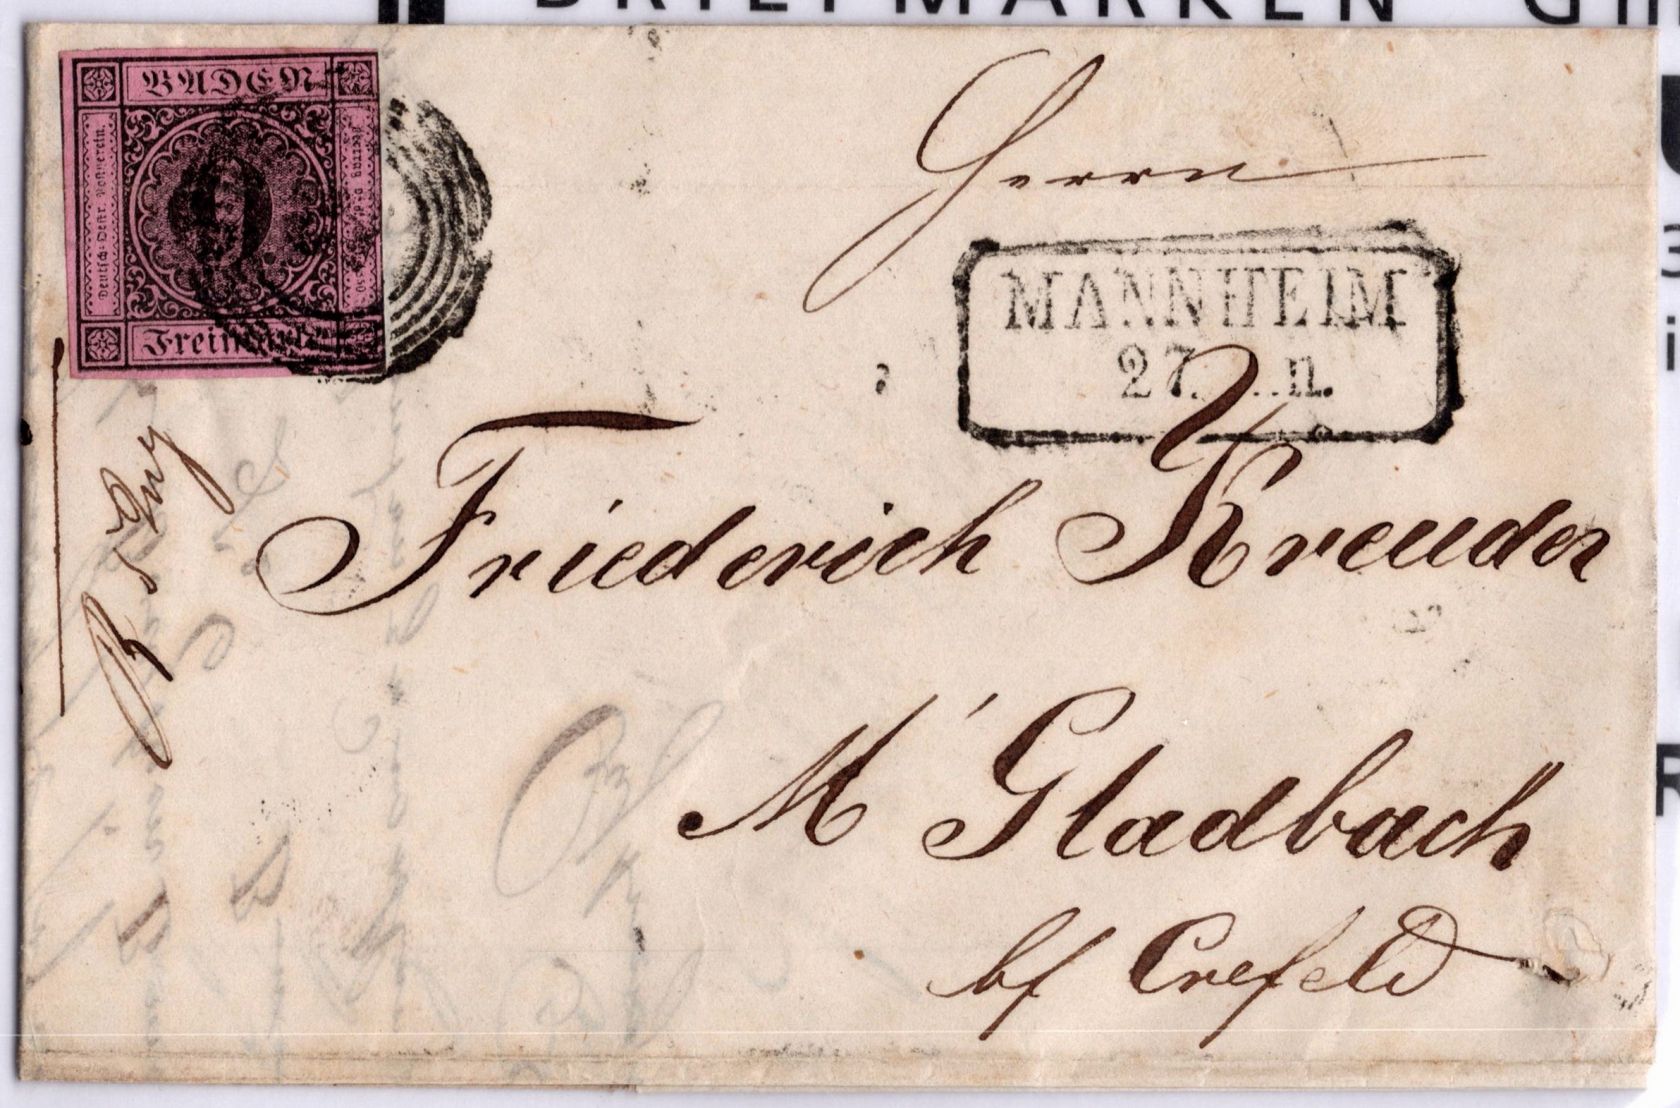 BRIEFMARKEN
BADEN
Deutsch-Oestr. Postverein.
9
Freimarke
Herrn
MANNHEIM
27.
Friederich Kreuder
M'Gladbach
bf Crefeld